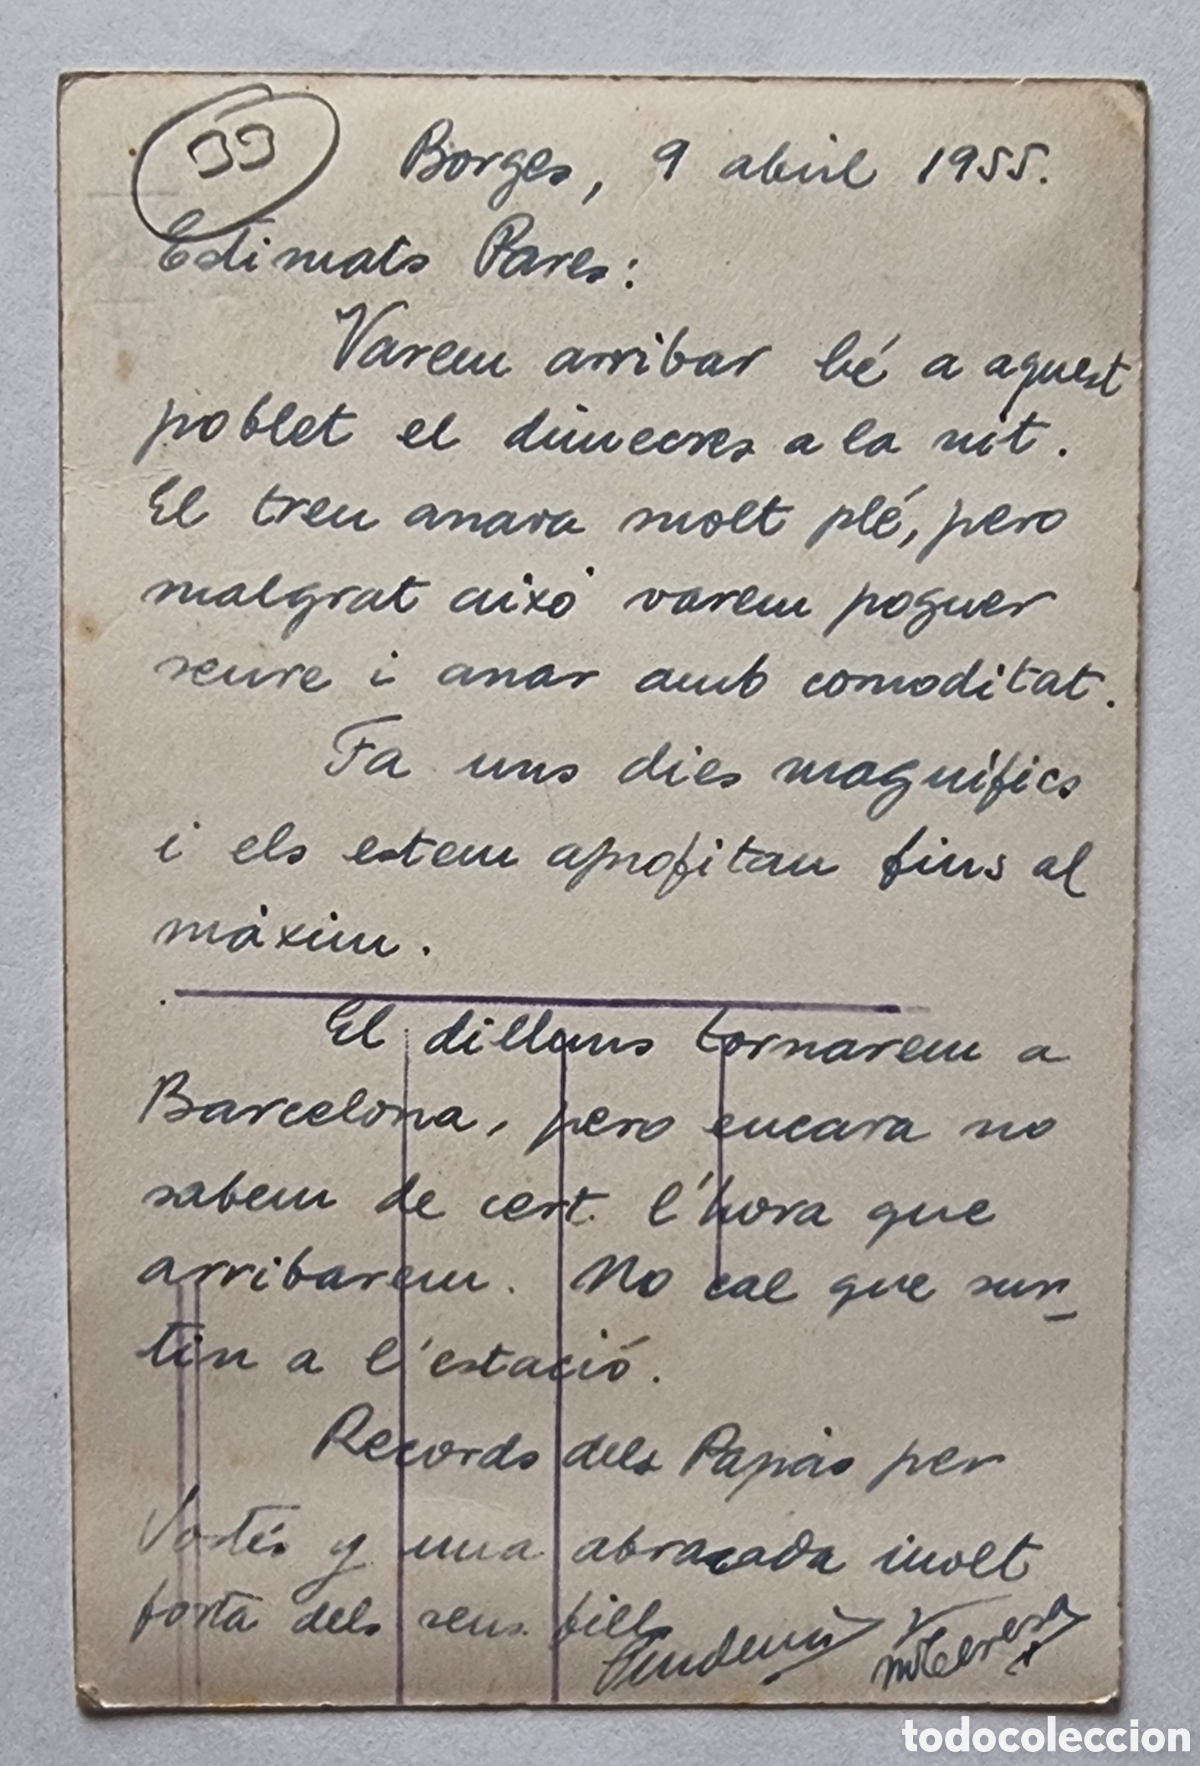 33
Borges, 9 abril 1955.
Estimats Pares:
Varem arribar bé a aquest
poblet el dimecres a la nit.
El treu anava molt plé, pero
malgrat aixó varem poguer
seure i anar amb comoditat.
Fa uns dies magnífics
i els estem aprofitan fins al
màxim.
El dilluns tornarem a
Barcelona, pero encara no
sabem de cert l'hora que
arribarem. No cal que sur-
tin a l'estació.
Records dels Papàs per
Vostés y una abraçada molt
forta dels seus fills
todocoleccion